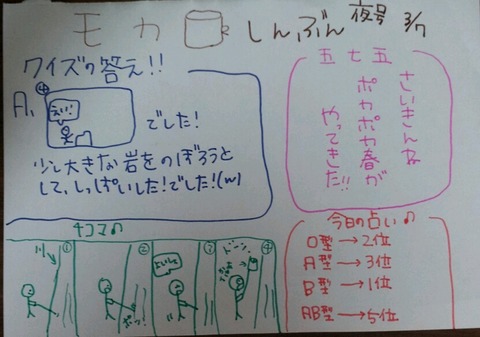 モカ しんぶん 夜号 3/7
クイズの答え!!
A. ④
えい!
でした!
少し大きな岩をのぼろうと
して、しっぱいした!でした!(w)
五七五
さいきんね
ポカポカ春が
やってきた!!
4コマ♪
川
①
②
③
④
今日の占い♪
O型→2位
A型→3位
B型→1位
AB型→5位